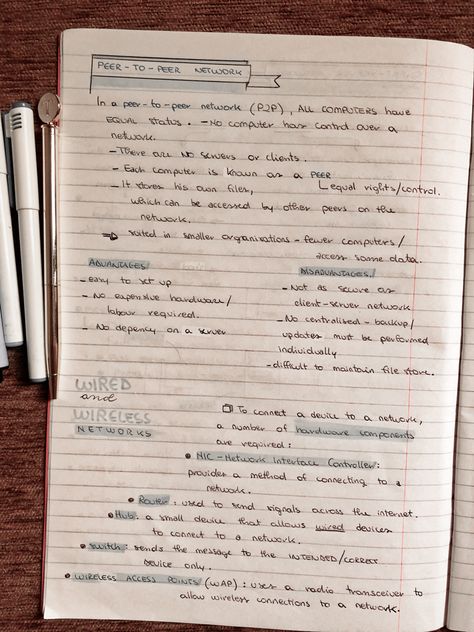 PEER-TO-PEER NETWORK
In a peer-to-peer network (P2P), ALL COMPUTERS have
EQUAL status. - No computer has control over a
network.
- There are NO servers or clients.
- Each computer is known as a PEER
equal rights/control.
- It stores his own files,
which can be accessed by other peers on the
network.
⇒ suited in smaller organisations - fewer computers/
access some data.
ADVANTAGES
- easy to set up
- No expensive hardware/
labour required.
- No depency on a server
DISADVANTAGES
- Not as secure as
client-server network
- No centralised - backup/
updates must be performed
individually
- difficult to maintain file store.
WIRED
and
WIRELESS
NETWORKS
To connect a device to a network,
a number of hardware components
are required:
• NIC - Network Interface Controller:
provides a method of connecting to a
network.
• Router: used to send signals across the internet.
• Hub: a small device that allows wired devices
to connect to a network.
• switch: sends the message to the INTENDED/CORRECT
DEVICE only.
• WIRELESS ACCESS POINTS (WAP): uses a radio transceiver to
allow wireless connections to a network.